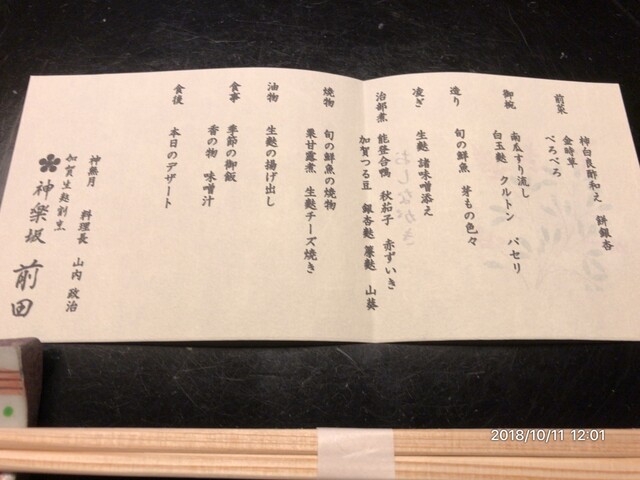 前菜
柿白良酢和え 餅銀杏
金時草
べろべろ
御椀
南瓜すり流し
白玉麩 クルトン パセリ
造り
旬の鮮魚 芽もの色々
凌ぎ
生麩 諸味噌添え
治部煮
能登合鴨 秋茄子 赤ずいき
加賀つる豆 銀杏麩 簾麩 山葵
焼物
旬の鮮魚の焼物
栗甘露煮 生麩チーズ焼き
油物
生麩の揚げ出し
食事
季節の御飯
香の物 味噌汁
食後
本日のデザート
神無月 料理長 山内 政治
加賀生麩割烹
神楽坂 前田
おしながき
2018/10/11 12:01